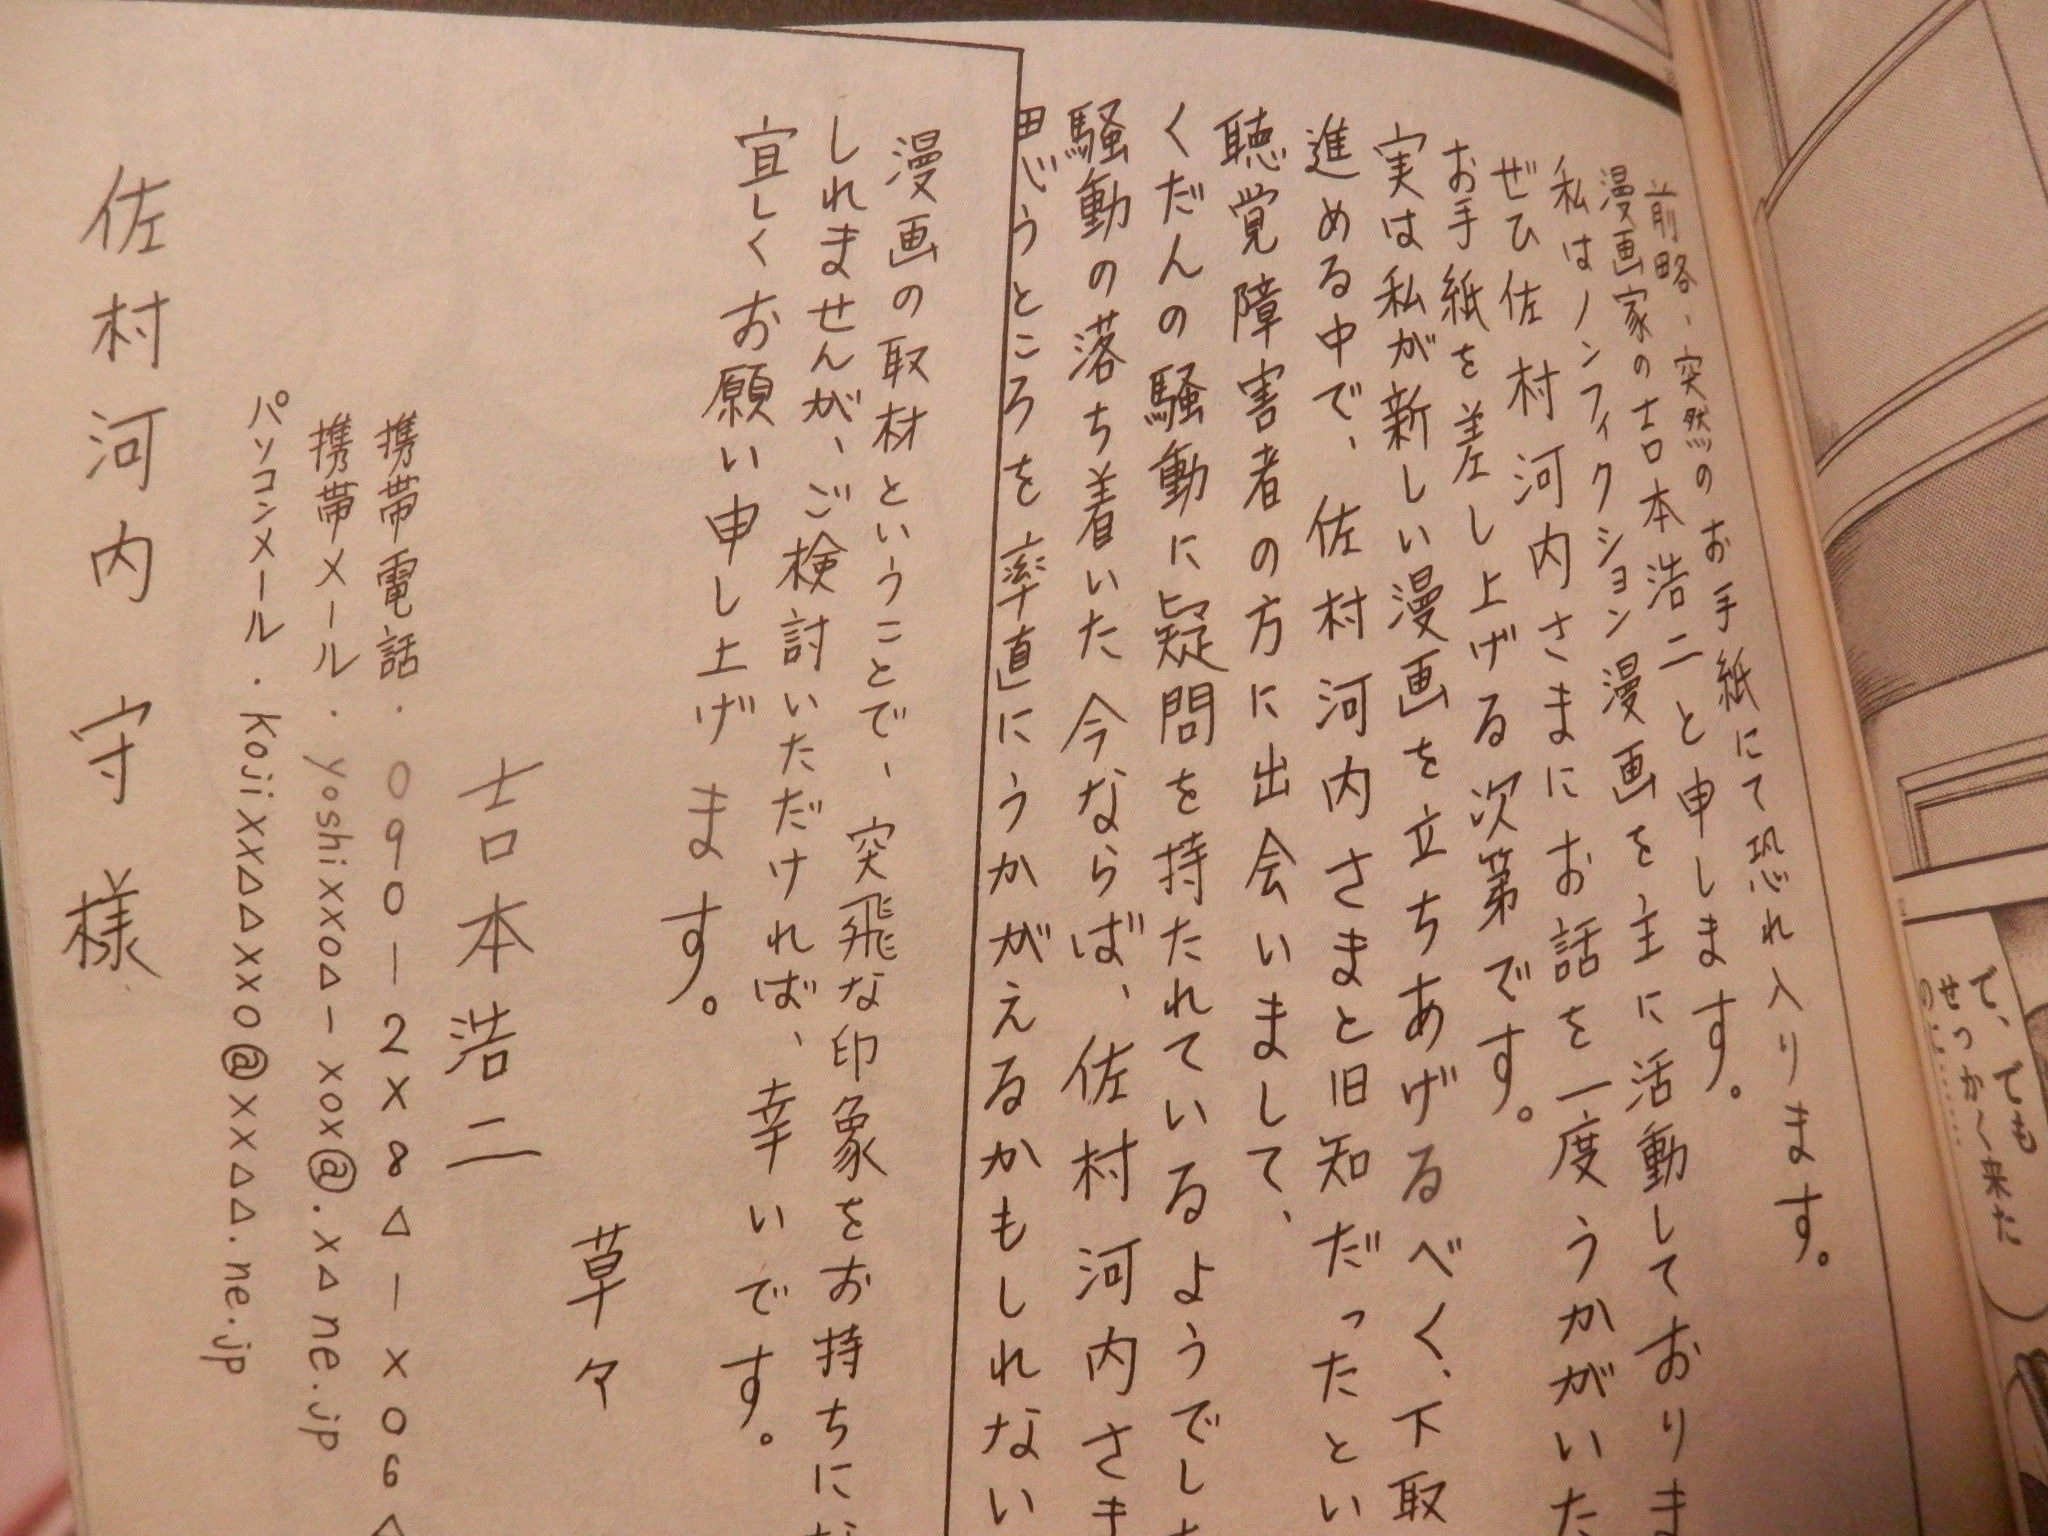 前略、突然のお手紙にて恐れ入ります。
漫画家の吉本浩二と申します。
私はノンフィクション漫画を主に活動しておりま
ぜひ佐村河内さまにお話を一度うかがいた
お手紙を差し上げる次第です。
実は私が新しい漫画を立ちあげるべく、下取
進める中で、佐村河内さまと旧知だったとい
聴覚障害者の方に出会いまして、
くだんの騒動に疑問を持たれているようでし
騒動の落ち着いた今ならば、佐村河内さま
思うところを率直にうかがえるかもしれない
漫画の取材ということで、突飛な印象をお持ちにな
しれませんが、ご検討いただければ、幸いです。
宜しくお願い申し上げます。
草々
吉本浩二
携帯電話・090-2X8△-X06△
携帯メール・yoshixxo△-xox@.x△ne.jp
パソコンメール・Kojixx△△xxo@xx△△.ne.jp
佐村河内 守 様
で、でも
せっか〜来た
の……